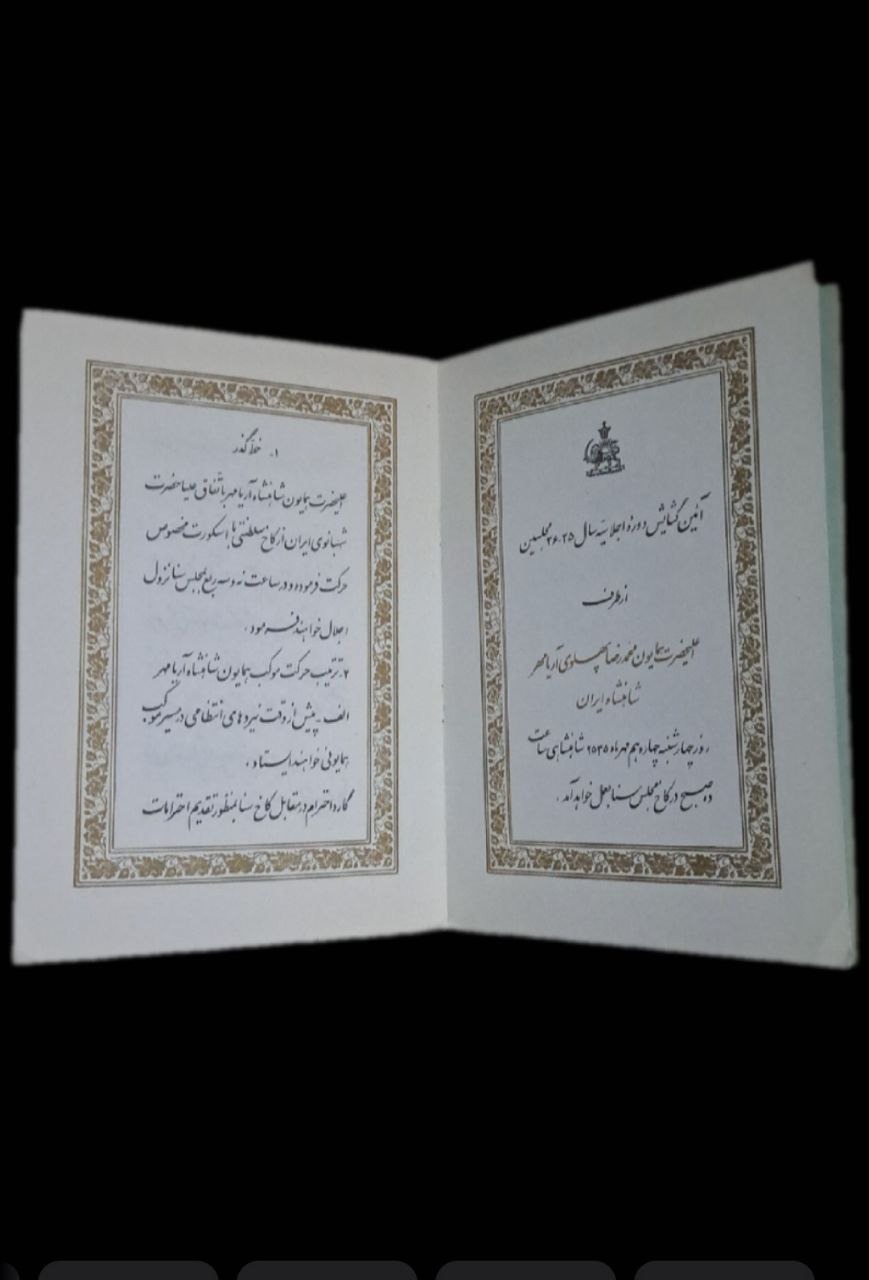 آئین گشایش دوره اجلاسیه سال ۳۵-۳۶ مجلسین
از طرف
اعلیحضرت همایون محمدرضا پهلوی آریامهر
شاهنشاه ایران
روز چهارشنبه چهاردهم مهرماه ۲۵۳۵ شاهنشاهی ساعت
ده صبح در کاخ مجلس سنا بعمل خواهد آمد.
۱- خط گذر
اعلیحضرت همایون شاهنشاه آریامهر باتفاق علیاحضرت
شهبانوی ایران از کاخ سلطنتی با اسکورت مخصوص
حرکت فرموده و در ساعت نه و سه ربع بمجلس سنا نزول
اجلال خواهند فرمود.
۲- ترتیب حرکت موکب همایون شاهنشاه آریامهر
الف - پیش از وقت نیروهای انتظامی در مسیر موکب
همایونی خواهند ایستاد.
گارد احترام در مقابل کاخ سنا بمنظور تقدیم احترامات